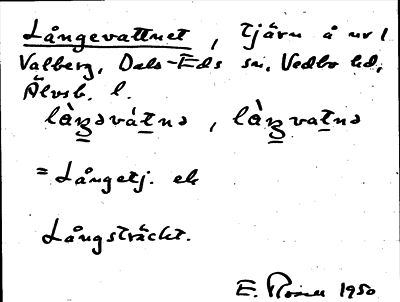 Långevattnet, tjärn å nr 1
Valberg, Dals-Eds sn, Vedbo hd,
Älvsb. l.
làŋ̲əvát̲nə, làŋ̲vat̲nə
= Långetj. ek
Långsträckt.
E. Rosell 1950